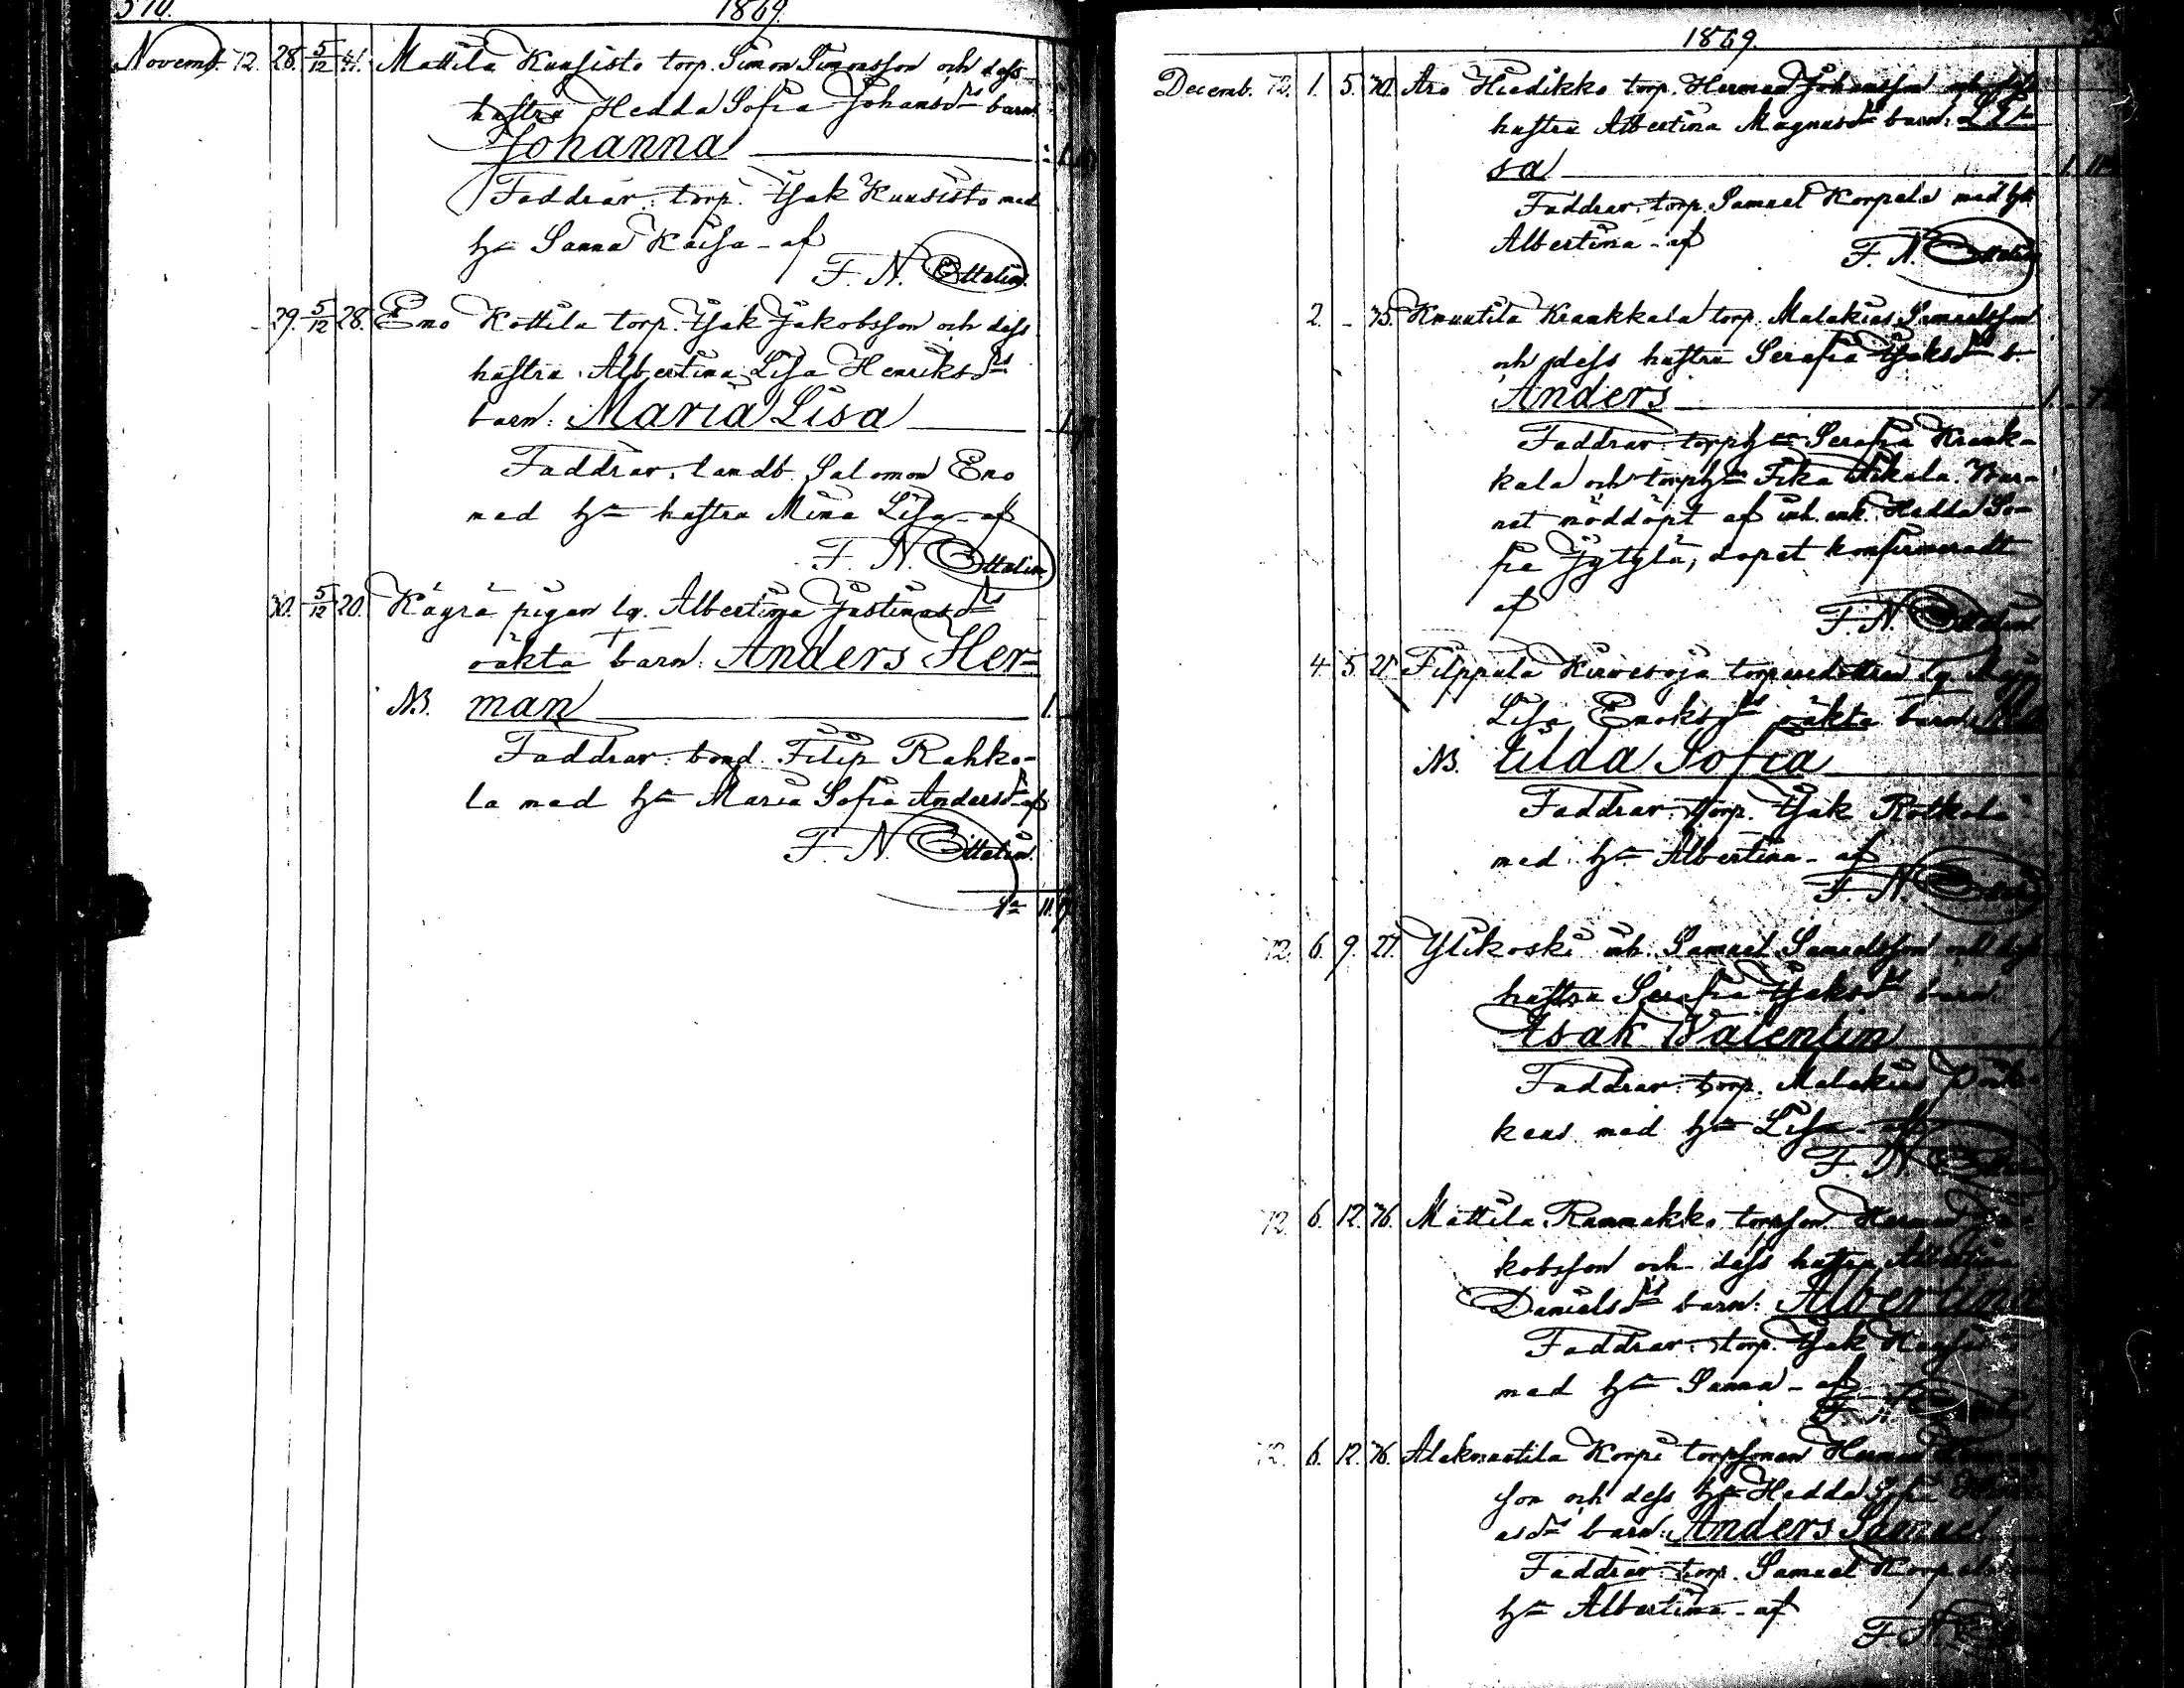 570. 1869.
Novemb. 72. 28. 5/12 41. Mattila Kuusisto torp. Simon Simonsson och dess
hustru Hedda Sofia Johansdr barn
Johanna 1.
Faddrar: torp. Isak Kuusisto med
hu Sanna Kaisa - af
F. N. Ottelin.
29. 5/12 28. Eno Kottila torp. Isak Jakobsson och dess
hustru Albertina Lisa Henriksdrs
barn: Maria Lisa 1.
Faddrar: landb. Salomon Eno
med hu hustru Mina Lisa - af
F. N. Ottelin
30. 5/12 20. Käyrä pigan lg. Albertina Justinasdrs
oäkta barn: Anders Her=
NB. man 1.
Faddrar: bond. Filip Rahko-
la med hu Maria Sofia Andersdr af
F. N. Ottelin.
Sa 11.
1869.
Decemb. 72. 1. 5. 30. Aro Hiedikko torp. Herman Johansson och dess
hustru Albertina Magnusdr barn:
sa 1.
Faddrar: torp. Samuel Korpela med hu
Albertina - af
F. N. Ottelin
2. - 35. Knuutila Kraakkala torp. Malakias Samuelsson
och dess hustru Serafia Isaksdr b.
Anders 1.
Faddrar: torph:u Serafia Kraak-
kala och torph:u Fika Uskala. Bar-
net nöddöpt af inh. enk. Hedda So-
fia Jytylä, dopet konfirmeradt
af
F. N. Ottelin
4. 5. 21. Filppula Kirvesoja torparedottren lg. Maja
Lisa Enoksdrs oäkta barn:
NB. Uilda Sofia
Faddrar: torp. Isak Rotkola
med hu Albertina - af
F. N. Ottelin
72. 6. 9. 27. Ylikoski inh. Samuel Samuelsson och dess
hustru Serafia Isaksdrs barn:
Isak Valentin
Faddrar: torp. Malakias
kens med hu Lisa - af
F. N. Ottelin
72. 6. 12. 36. Mattila Rammakko torpson Herman Ja-
kobsson och dess hustru Albertina
Danielsdrs barn: Albertina
Faddrar: torp. Isak
med hu Sanna - af
F. N.
72. 6. 12. 36. Alaknuutila Korpi torpsonen Herman
son och dess hu Hedda Sofia
asdrs barn: Anders Samuel
Faddrar: torp. Samuel Korpela
hu Albertina - af
F. N.